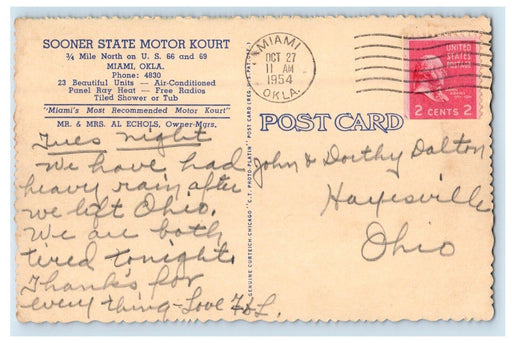 SOONER STATE MOTOR KOURT
¾ Mile North on U. S. 66 and 69
MIAMI, OKLA.
Phone: 4830
23 Beautiful Units — Air-Conditioned
Panel Ray Heat — Free Radios
Tiled Shower or Tub
"Miami's Most Recommended Motor Kourt"
MR. & MRS. AL ECHOLS, Owner-Mgrs.
Tues night
We have had
heavy rain after
we left Ohio.
We are both
tired tonight.
Thanks for
every thing - Love F&L.
GENUINE CURTEICH-CHICAGO "C.T. PHOTO-PLATIN" POST CARD (REG. U.S. PAT. OFF.)
MIAMI
OCT 27
11 AM
1954
OKLA.
UNITED
STATES
POSTAGE
2 CENTS 2
POST CARD
John & Dorthy Dalton
Hayesville
Ohio